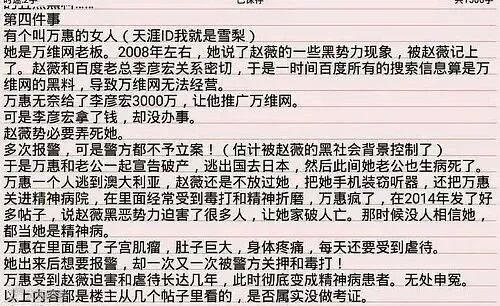 已保存
第四件事
有个叫万惠的女人（天涯ID我就是雪梨）
她是万维网老板。2008年左右，她说了赵薇的一些黑势力现象，被赵薇记上
了。赵薇和百度老总李彦宏关系密切，于是一时间百度所有的搜索信息算是万
维网的黑料，导致万维网无法经营。
万惠无奈给了李彦宏3000万，让他推广万维网。
可是李彦宏拿了钱，却没办事。
赵薇势必要弄死她。
多次报警，可是警方都不予立案！（估计被赵薇的黑社会背景控制了）
于是万惠和老公一起宣告破产，逃出国去日本，然后此间她老公也生病死了。
万惠一个人逃到澳大利亚，赵薇还是不放过她，把她手机装窃听器，还把万惠
关进精神病院，在里面经常受到毒打和精神折磨，万惠疯了，在2014年发了好
多帖子，说赵薇黑恶势力迫害了很多人，让她家破人亡。那时候没人相信她，
都当她是精神病。
万惠在里面患了子宫肌瘤，肚子巨大，身体疼痛，每天还要受到虐待。
她出来后想要报警，却一次又一次被警方关押和毒打！
万惠受到赵薇迫害和虐待长达几年，此时彻底变成精神病患者。无处申冤。
以上内容都是楼主从几个帖子里看的，是否属实没做考证。